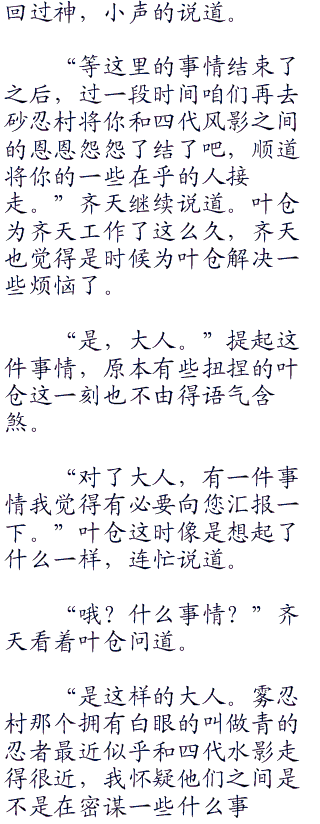 回过神，小声的说道。
“等这里的事情结束了
之后，过一段时间咱们再去
砂忍村将你和四代风影之间
的恩恩怨怨了结了吧，顺道
将你的一些在乎的人接
走。”齐天继续说道。叶仓
为齐天工作了这么久，齐天
也觉得是时候为叶仓解决一
些烦恼了。
“是，大人。”提起这
件事情，原本有些扭捏的叶
仓这一刻也不由得语气含
煞。
“对了大人，有一件事
情我觉得有必要向您汇报一
下。”叶仓这时像是想起了
什么一样，连忙说道。
“哦？什么事情？”齐
天看着叶仓问道。
“是这样的大人。雾忍
村那个拥有白眼的叫做青的
忍者最近似乎和四代水影走
得很近，我怀疑他们之间是
不是在密谋一些什么事